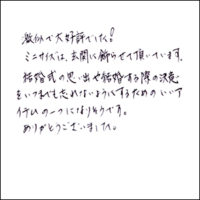 激似で大好評でした!
ミニサイズは、玄関に飾らせて頂いています。
結婚式の思い出や結婚する際の決意
をいつまでも忘れないようにするためのいいア
イテムの一つになりそうです。
ありがとうございました。